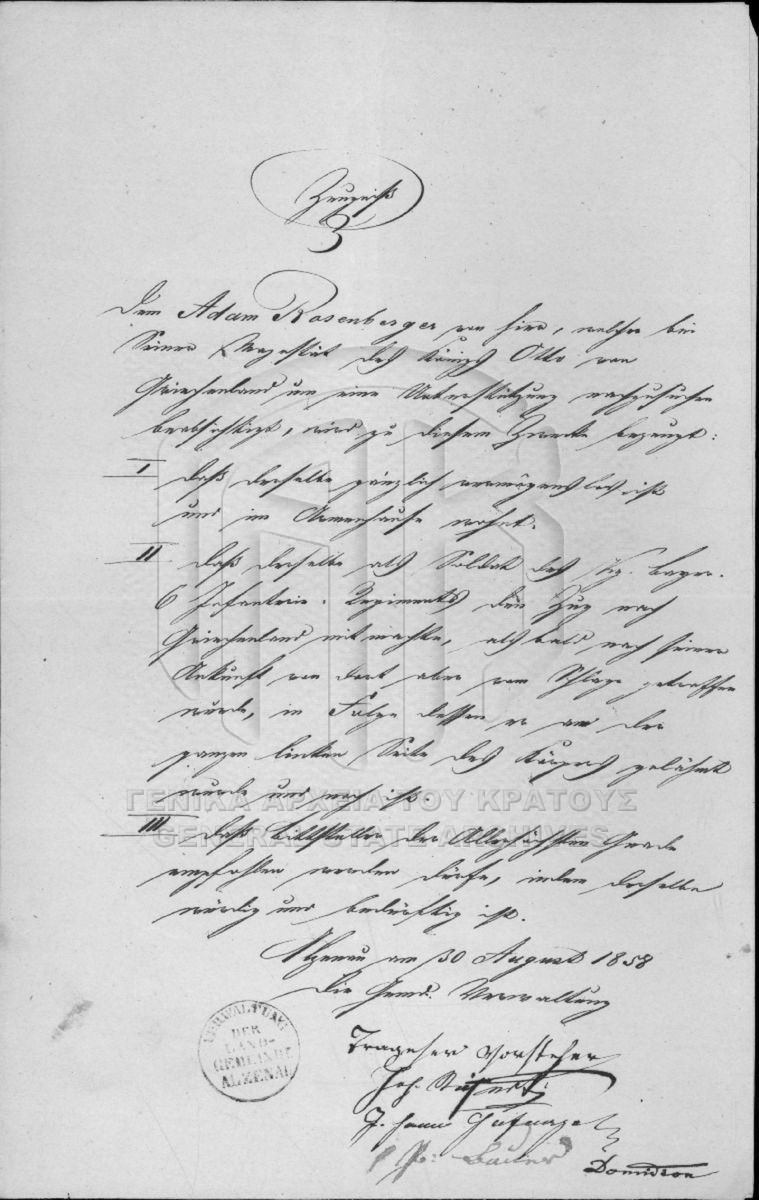 Zeugniß
Dem Adam Rosenberger von hier, welcher bei
Seiner Majestät des Königs Otto von
Griechenland um eine Unterstützung nachzusuchen
beabsichtigt, wird zu diesem Zwecke bezeugt:
I daß derselbe gänzlich vermögenslos ist
und im Armenhause wohnt.
II daß derselbe als Soldat des kg. bayer.
6 Infanterie-Regiments den Zug nach
Griechenland mitmachte, alsbald nach seiner
Ankunft von dort aber vom Schlage getroffen
wurde, in Folge dessen er an der
ganzen linken Seite des Körpers gelähmt
wurde und noch ist.
ΓΕΝΙΚΑ ΑΡΧΕΙΑ ΤΟΥ ΚΡΑΤΟΥΣ
GENERAL STATE ARCHIVES
III daß Bittsteller der Allerhöchsten Gnade
empfohlen werden dürfe, indem derselbe
würdig und bedürftig ist.
Alzenau am 30 August 1858
Die Gemd. Verwaltung
VERWALTUNG
DER
LAND-
GEMEINDE
ALZENAU
Trageser Vorsteher
Joh.
Hufnagel
Bauer